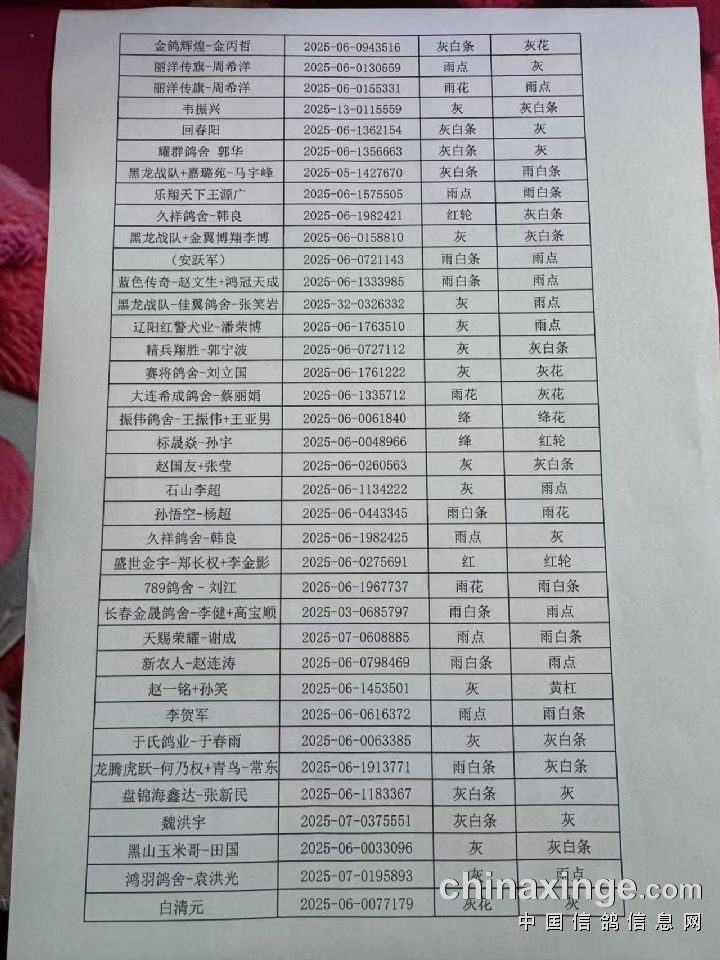 金鸽辉煌-金丙哲 2025-06-0943516 灰白条 灰花
丽洋传旗-周希洋 2025-06-0130559 雨点 灰
丽洋传旗-周希洋 2025-06-0155331 雨花 雨点
韦振兴 2025-13-0115559 灰 灰白条
回春阳 2025-06-1362154 灰白条 灰
耀群鸽舍 郭华 2025-06-1356663 灰白条 灰
黑龙战队+嘉璐苑-马宇峰 2025-05-1427670 灰白条 雨白条
乐翔天下王源广 2025-06-1575505 雨点 雨白条
久祥鸽舍-韩良 2025-06-1982421 红轮 灰白条
黑龙战队+金翼博翔李博 2025-06-0158810 灰 灰白条
（安跃军） 2025-06-0721143 雨白条 雨点
蓝色传奇-赵文生+鸿冠天成 2025-06-1333985 雨白条 雨点
黑龙战队-佳翼鸽舍-张笑岩 2025-32-0326332 灰 雨点
辽阳红警犬业-潘荣博 2025-06-1763510 灰 雨点
精兵翔胜-郭宁波 2025-06-0727112 灰 灰白条
赛将鸽舍-刘立国 2025-06-1761222 灰 灰花
大连希成鸽舍-蔡丽娟 2025-06-1335712 雨花 灰花
振伟鸽舍-王振伟+王亚男 2025-06-0061840 绛 绛花
标晟焱-孙宇 2025-06-0048966 绛 红轮
赵国友+张莹 2025-06-0260563 灰 灰白条
石山李超 2025-06-1134222 灰 雨点
孙悟空-杨超 2025-06-0443345 雨白条 雨花
久祥鸽舍-韩良 2025-06-1982425 雨点 灰
盛世金宇-郑长权+李金影 2025-06-0275691 红 红轮
789鸽舍－刘江 2025-06-1967737 雨花 雨白条
长春金晟鸽舍-李健+高宝顺 2025-03-0685797 雨白条 雨点
天赐荣耀-谢成 2025-07-0608885 雨点 雨白条
新农人-赵连涛 2025-06-0798469 雨白条 雨点
赵一铭+孙笑 2025-06-1453501 灰 黄杠
李贺军 2025-06-0616372 雨点 雨白条
于氏鸽业-于春雨 2025-06-0063385 灰 灰白条
龙腾虎跃-何乃权+青鸟-常东 2025-06-1913771 雨白条 灰白条
盘锦海鑫达-张新民 2025-06-1183367 灰白条 灰
魏洪宇 2025-07-0375551 灰白条 灰
黑山玉米哥-田国 2025-06-0033096 灰 灰白条
鸿羽鸽舍-袁洪光 2025-07-0195893 灰 雨点
白清元 2025-06-0077179 灰花 灰
chinaxinge.com
中国信鸽信息网